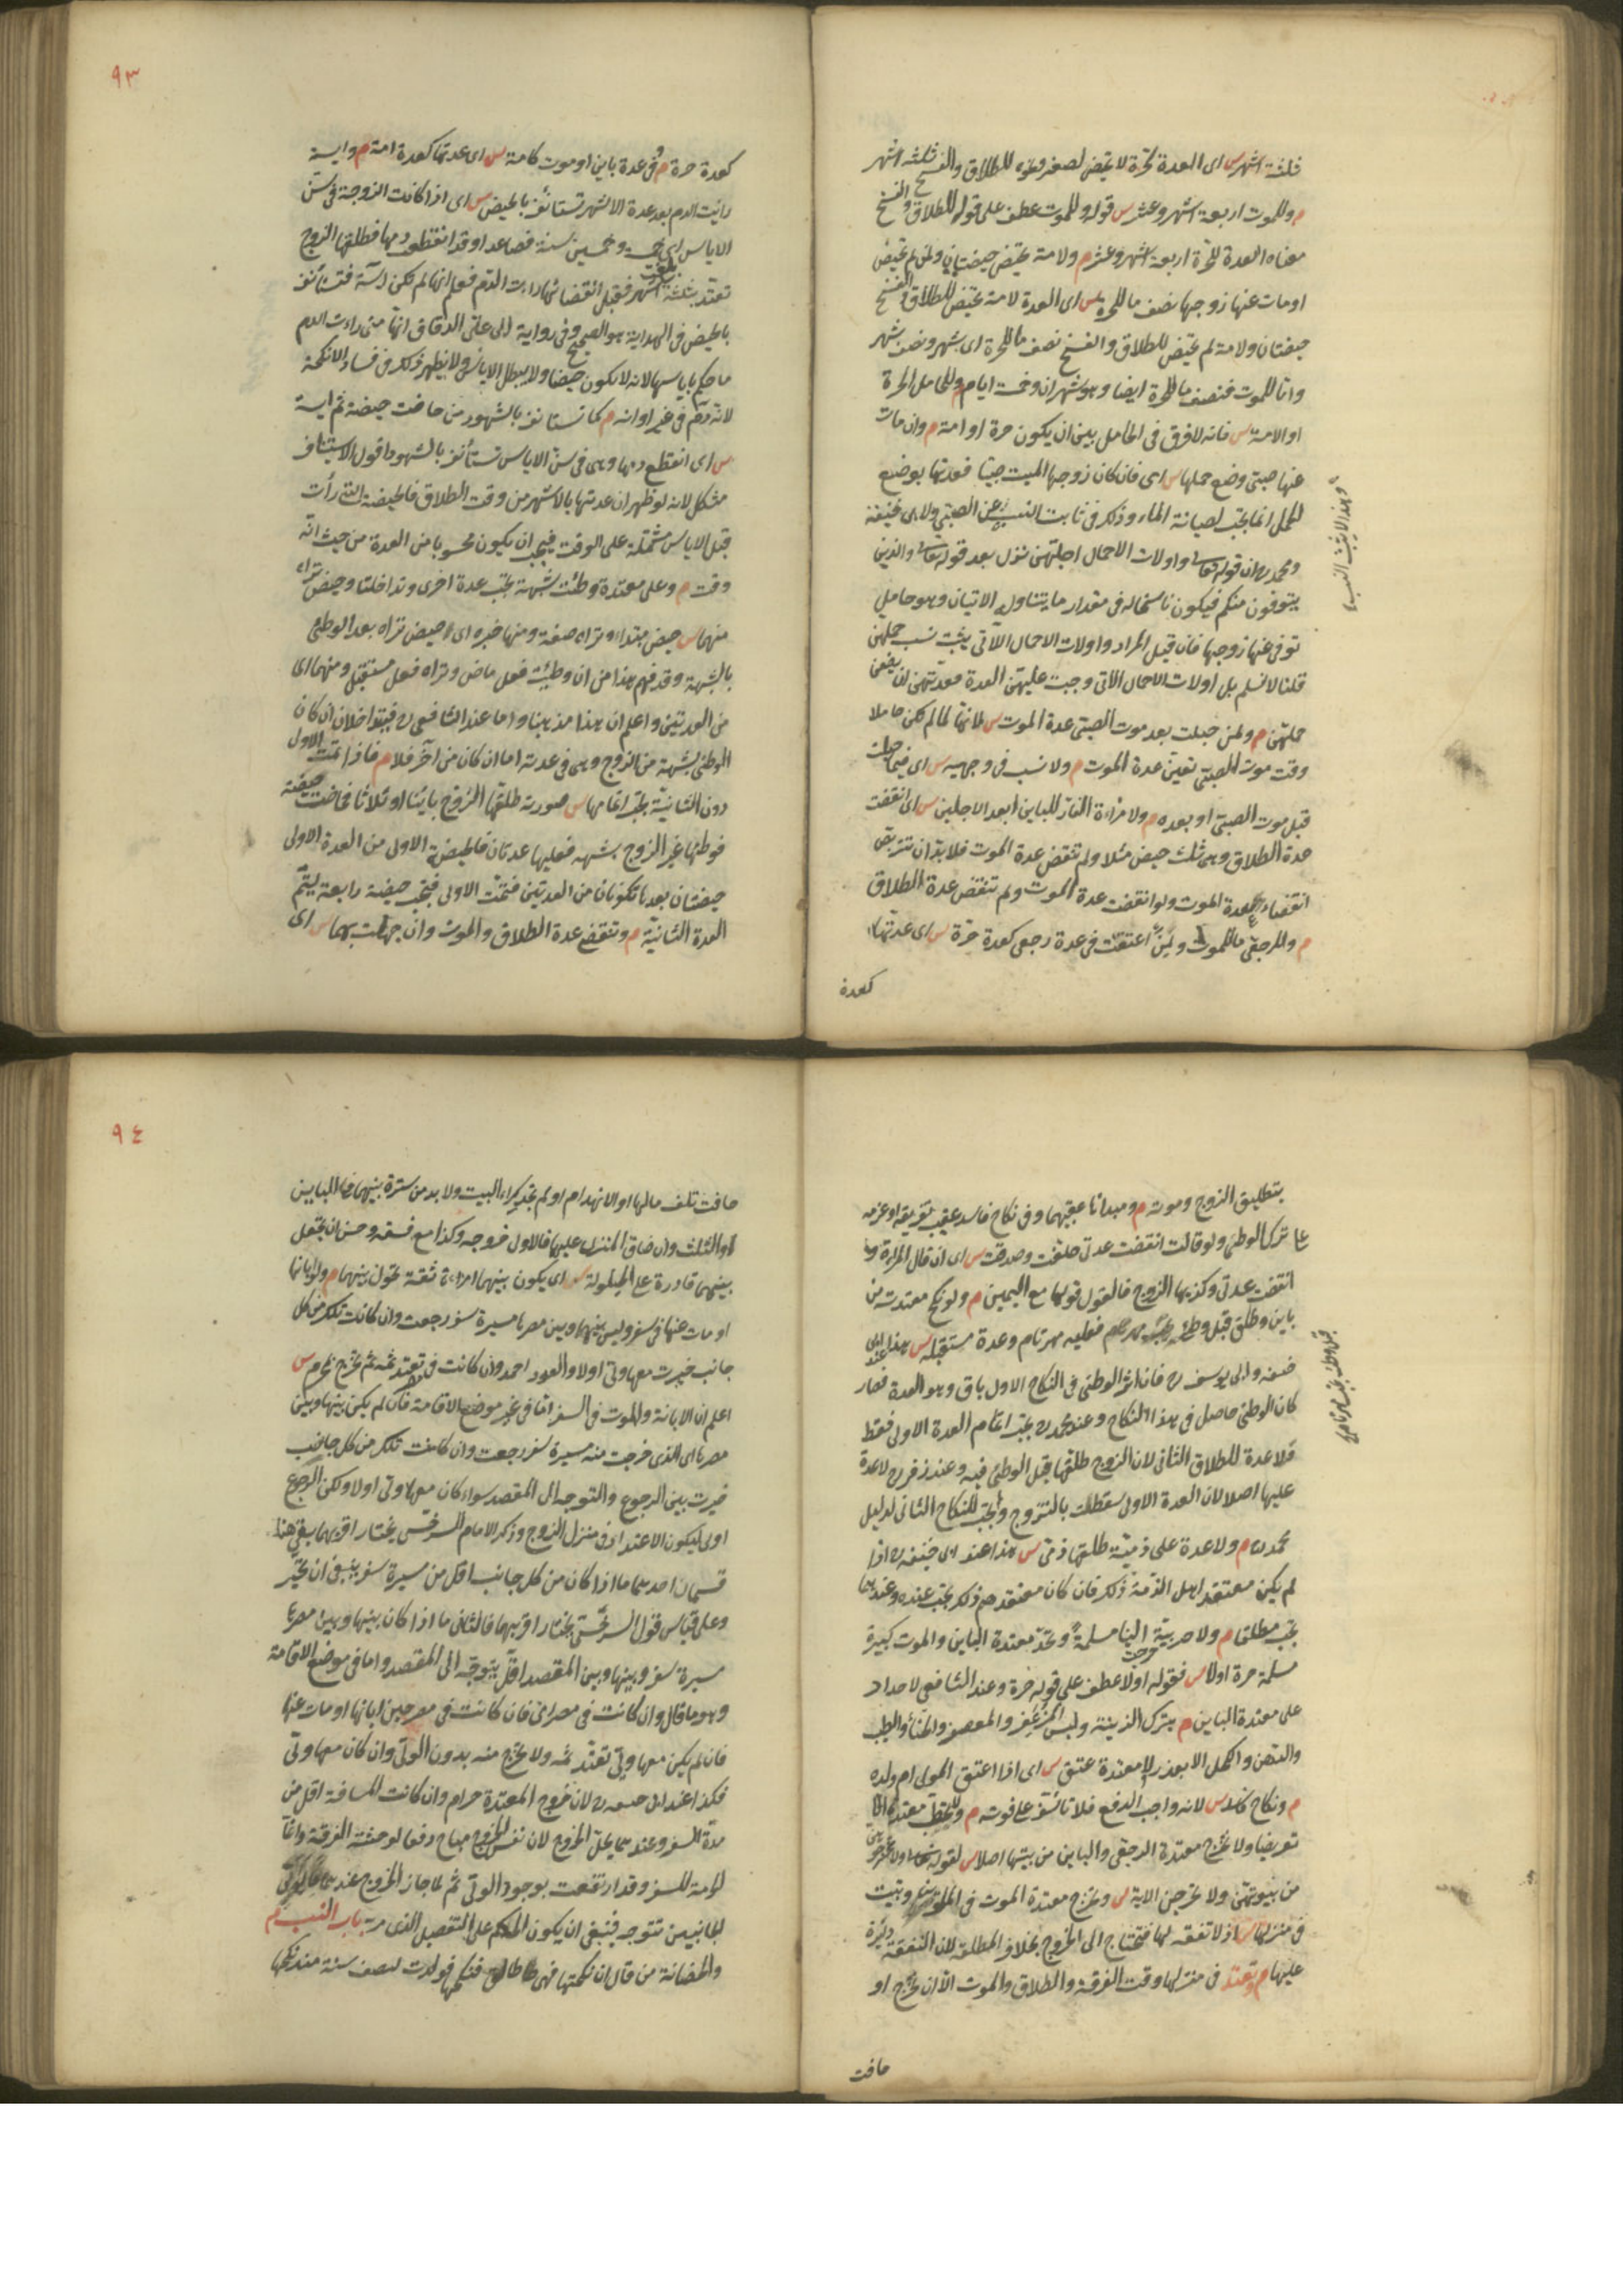 فثلثة اشهر س اى العدة لحرة لا تحيض لصغر ونحوه للطلاق والفسخ ثلثة اشهر
م وللموت اربعة اشهر وعشر س قوله وللموت عطف على قوله للطلاق والفسخ
معناه العدة للحرة اربعة اشهر وعشر م ولامة تحيض حيضتان ولمن لم تحيض
او مات عنها زوجها نصف ما للحرة س اى العدة لامة تحيض للطلاق والفسخ
حيضتان ولامة لم تحيض للطلاق والفسخ نصف ما للحرة اى شهر ونصف شهر
واما للموت فنصف ما للحرة ايضا وهو شهران وخمسة ايام م وللحامل الحرة
او الامة س فانه لا فرق فى الحامل بين ان يكون حرة او امة م وان مات
عنها صبى وضع حملها س اى فان كان زوجها الميت صبيا فعدتها بوضع
الحمل انما يجب لصيانة الماء وذلك فى ثابت النسب عن الصبى ولابى حنيفة
ومحمد رح ان قوله تعالى واولات الاحمال اجلهن نزل بعد قوله تعالى والذين
يتوفون منكم فيكون ناسخا له فى مقدار ما يتناوله الاتيان وهو حامل
توفى عنها زوجها فان قيل المراد واولات الاحمال اللاتى يثبت نسب حملهن
قلنا لا نسلم بل اولات الاحمال اللاتى وجبت عليهن العدة فعدتهن ان يضعن
حملهن م ولمن حبلت بعد موت الصبى عدة الموت س لانها لما لم تكن حاملا
وقت موت الصبى تعين عدة الموت م ولا نسب فى وجهيه س اى فيما حبلت
قبل موت الصبى او بعده م ولامراءة الفار للباين ابعد الاجلين س اى انقضت
عدة الطلاق وهى ثلث حيض مثلا ولم تنقض عدة الموت فلا بد ان تتربص
انقضاء عدة الموت ولو انقضت عدة الموت ولم تنقض عدة الطلاق
م وللرجعى ما للموت ولمن اعتقت فى عدة رجعى كعدة حرة س اى عدتها
كعدة
وهذا لا يثبت النسب
٩٣
كعدة حرة م وفى عدة باين او موت كامة س اى عدتها كعدة امة م وايسة
رايت الدم بعد عدة الاشهر تستانف بالحيض س اى اذا كانت الزوجة فى سن
الاياس اى خمسة وخمسين سنة فصاعدا وقد انقطع دمها فطلقها الزوج
تعتد بثلثة اشهر فقبل انقضائها راءت الدم فعلم انها لم تكن آيسة فتستأنف
بالحيض فى الهداية هو الصحيح وفى رواية ابى على الدقاق انها متى راءت الدم
ما حكم باياسها لانه لا يكون حيضا ولا يبطل الاياس ولا يظهر ذلك فى فساد الانكحة
لانه دم فى غير اوانه م كما تستانف بالشهور من حاضت حيضة ثم ايسة
س اى انقطع دمها وهى فى سن الاياس تستأنف بالشهور اقول الاستيناف
مشكل لانه لو ظهر ان عدتها بالاشهر من وقت الطلاق فالحيضة التى رأت
قبل الاياس مشتملة على الوقت فيجب ان يكون محسوبا من العدة من حيث انه
وقت م وعلى معتدة وطئت بشبهة تجب عدة اخرى وتداخلتا وحيض تراه
منهما س حيض مبتداء وتراه صفة ومنهما خبره اى حيض تراه بعد الوطئ
بالشبهة وقد فهم هذا من ان وطئت فعل ماض وتراه فعل مستقبل ومنهما اى
من العدتين واعلم ان هذا مذهبنا واما عند الشافعى رح فيتداخلان ان كان
الوطئ بشبهة من الزوج وهى فى عدته اما ان كان من آخر فلا م فاذا تمت الاولى
دون الثانية يجب اتمامها س صورته طلقها الزوج باينا او ثلاثا فحاضت حيضة
فوطئها غير الزوج بشبهة فعليها عدتان فالحيضة الاولى من العدة الاولى
حيضتان بعدها تكونان من العدتين فتمت الاولى فتجب حيضة رابعة ليتم
العدة الثانية م وتنقضى عدة الطلاق والموت وان جهلت بهما س اى
بتطليق الزوج وموته م ومبدائها عقبهما وفى نكاح فاسد عقيب تفريقه او عزمه
على ترك الوطئ ولو قالت انقضت عدتى حلفت وصدقت س اى ان قال المراة
انقضت عدتى وكذبها الزوج فالقول قولها مع اليمين م ولو نكح معتدته من
باين وطلق قبل وطئه يجب مهر تام فعليه مهر تام وعدة مستقبلة س هذا عند ابى
حنيفة وابى يوسف رح فان اثر الوطئ فى النكاح الاول باق وهو العدة فصار
كان الوطئ حاصل فى هذا النكاح وعند محمد رح يجب اتمام العدة الاولى فقط
فلا عدة للطلاق الثانى لان الزوج طلقها قبل الوطئ فيه وعند زفر رح لا عدة
عليها اصلا لان العدة الاولى سقطت بالتزوج ولم يجب للنكاح الثانى لدليل
محمد رح م ولا عدة على ذمية طلقها ذمى س هذا عند ابى حنيفة رح اذا
لم يكن معتقد اهل الذمة ذلك فان كان معتقدهم ذلك يجب عنده وعندهما
يجب مطلقا م ولا حربية خرجت الينا مسلمة وتحد معتدة الباين والموت كبيرة
مسلمة حرة اولا س فقوله اولا عطف على قوله حرة وعند الشافعى لا حداد
على معتدة الباين م بترك الزينة ولبس المزعفر والمعصفر والحناء والطيب
والدهن والكحل الا بعذر لا معتدة عتق س اى اذا اعتق المولى ام ولده
م ونكاح فاسد س لانه واجب الدفع فلا تأسف على فوته م ولا تخطب معتدة الا
تعريضا ولا تخرج معتدة الرجعى والباين من بيتها اصلا س لقوله تعالى ولا تخرجوهن
من بيوتهن ولا يخرجن الاية س وتخرج معتدة الموت فى الملوين وتبيت
فى منزلها س اذ لا نفقة لها فتحتاج الى الخروج بخلاف المطلقة لان النفقة دارة
عليها م وتعتد فى منزلها وقت الفرقة والطلاق والموت الا ان تخرج او
خافت
قبل وطئه يجب مهر تام
٩٤
خافت تلف مالها او الانهدام او لم تجد كراء البيت ولا بد من سترة بينهما فى الباين
او الثلث وان ضاق المنزل عليهما فالاولى خروجه وكذا مع فسقه وحسن ان يجعل
بينهما قادرة على الحيلولة س اى يكون بينهما امراءة ثقة تحول بينهما م ولو ابانها
او مات عنها فى سفر وليس بينها وبين مصرها مسيرة سفر رجعت وان كانت تلك من كل
جانب خيرت معها ولى اولا والعود احمد وان كانت فى مصر تعتد ثمه ثم تخرج بمحرم س
اعلم ان الابانة والموت فى السفر اما فى غير موضع الاقامة فان لم يكن بينها وبين
مصرها اى الذى خرجت منه مسيرة سفر رجعت وان كانت تلك من كل جانب
خيرت بين الرجوع والتوجه الى المقصد سواء كان معها ولى اولا ولكن الرجوع
اولى ليكون الاعتداد فى منزل الزوج وذكر الامام السرخسى يختار اقربهما بقى هنا
قسمان احدهما ما اذا كان من كل جانب اقل من مسيرة سفر ينبغى ان تخير
وعلى قياس قول السرخسى يختار اقربهما فالثانى ما اذا كان بينها وبين مصرها
مسيرة سفر وبينها وبين المقصد اقل يتوجه الى المقصد واما فى موضع الاقامة
وهو ما قال وان كانت فى مصر اى فان كانت فى مصر حين ابانها او مات عنها
فان لم يكن معها ولى تعتد ثمه ولا تخرج منه بدون الولى وان كان معها ولى
فكذا عند ابى حنيفة رح لان خروج المعتدة حرام وان كانت المسافة اقل من
مدة السفر وعندهما يحل الخروج لان نفس الخروج مباح دفعا لوحشة الفرقة وانما
الحرمة للسفر وقد ارتفعت بوجود الولى ثم لما جاز الخروج عندهما
الجانبين تتوجه فينبغى ان يكون الحكم على التفصيل الذى مر باب النسب م
والحضانة من قال ان نكحتها فهى طالق فنكحها فولدت لنصف سنة منذ نكحها